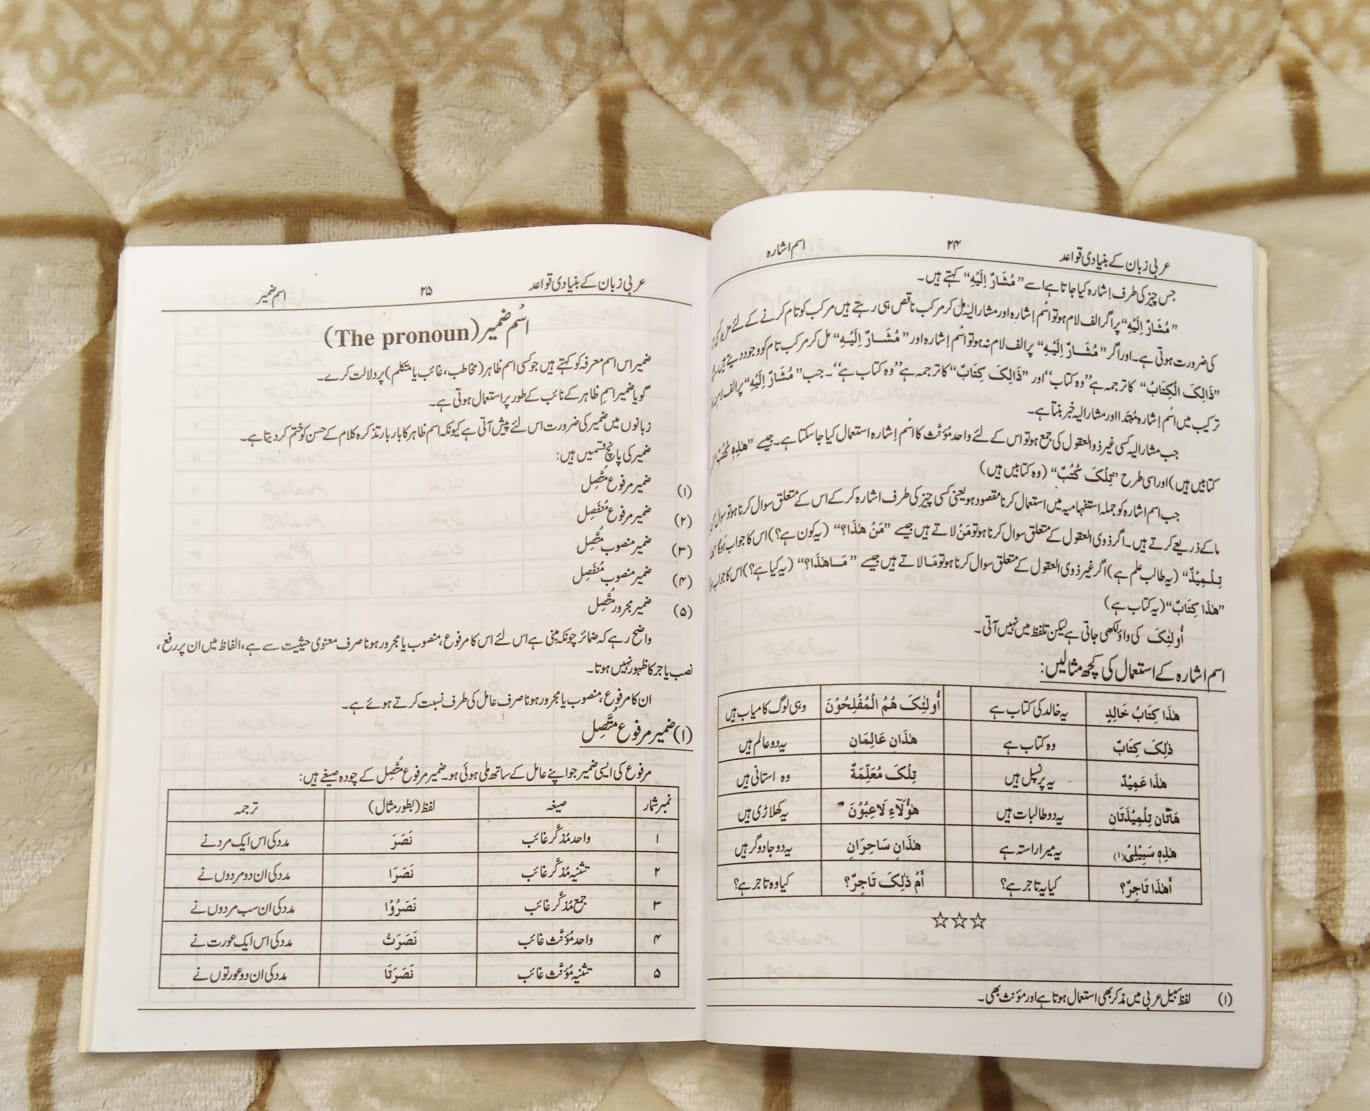 عربی زبان کے بنیادی قواعد ۲۴ اسم اشارہ
جس چیز کی طرف اشارہ کیا جاتا ہے اسے ”مُشَارٌ اِلَیْهِ“ کہتے ہیں۔
”مُشَارٌ اِلَیْهِ“ پر اگر الف لام ہو تو اسْم اِشارہ اور مشار الیہ مل کر مرکب ناقص ہی رہتے ہیں مرکب کو تام کرنے کے لئے
کی ضرورت ہوتی ہے۔ اور اگر ”مُشَارٌ اِلَیْهِ“ پر الف لام نہ ہو تو اسْم اِشارہ اور ”مُشَارٌ اِلَیْهِ“ مل کر مرکب تام کو وجود دیتے ہیں
”ذَالِکَ الْکِتَابُ“ کا ترجمہ ہے ”وہ کتاب“ اور ”ذَالِکَ کِتَابٌ“ کا ترجمہ ہے ”وہ کتاب ہے“۔ جب ”مُشَارٌ اِلَیْهِ“ پر الف لام
ترکیب میں اسْم اِشارہ مُبْتَدا اور مشار الیہ خبر بنتا ہے۔
جب مشار الیہ کسی غیر ذو العقول کی جمع ہو تو اس کے لئے واحد مؤنث کا اسْم اِشارہ استعمال کیا جا سکتا ہے۔ جیسے ”هٰذِهٖ کُتُبٌ
کتابیں ہیں) اور اسی طرح ”تِلْکَ کُتُبٌ“ (وہ کتابیں ہیں)
جب اسم اشارہ کو جملہ استفہامیہ میں استعمال کرنا مقصود ہو یعنی کسی چیز کی طرف اشارہ کر کے اس کے متعلق سوال کرنا ہو تو سوال
ما کے ذریعے کرتے ہیں۔ اگر ذوی العقول کے متعلق سوال کرنا ہو تو مَنْ لاتے ہیں جیسے ”مَنْ هٰذَا؟“ (یہ کون ہے؟) اس کا جواب ہوگا
تِلْمِیْذٌ“ (یہ طالب علم ہے) اگر غیر ذوی العقول کے متعلق سوال کرنا ہو تو مَا لاتے ہیں جیسے ”مَا هٰذَا؟“ (یہ کیا ہے؟) اس کا جواب
”هٰذَا کِتَابٌ“ (یہ کتاب ہے)
اُولٰئِکَ کی واؤ لکھی جاتی ہے لیکن تلفظ میں نہیں آتی۔
اسم اشارہ کے استعمال کی کچھ مثالیں:
هٰذَا کِتَابُ خَالِدٍ یہ خالد کی کتاب ہے اُولٰئِکَ هُمُ الْمُفْلِحُوْنَ وہی لوگ کامیاب ہیں
ذٰلِکَ کِتَابٌ وہ کتاب ہے هٰذَانِ عَالِمَانِ یہ دو عالم ہیں
هٰذَا عَمِیْدٌ یہ پرنسپل ہیں تِلْکَ مُعَلِّمَةٌ وہ استانی ہیں
هَاتَانِ تِلْمِیْذَتَانِ یہ دو طالبات ہیں هٰؤُلَآءِ لَاعِبُوْنَ یہ کھلاڑی ہیں
هٰذِهٖ سَبِیْلِیْ(۱) یہ میرا راستہ ہے هٰذَانِ سَاحِرَانِ یہ دو جادوگر ہیں
أَهٰذَا تَاجِرٌ؟ کیا یہ تاجر ہے؟ أَمْ ذٰلِکَ تَاجِرٌ؟ کیا وہ تاجر ہے؟
☆☆☆
(۱) لفظ سبیل عربی میں مذکر بھی استعمال ہوتا ہے اور مؤنث بھی۔
عربی زبان کے بنیادی قواعد ۲۵ اسم ضمیر
اسْم ضمیر (The pronoun)
ضمیر اس اسم معرفہ کو کہتے ہیں جو کسی اسم ظاہر (مخاطب، غائب یا متکلم) پر دلالت کرے۔
گویا ضمیر اسمِ ظاہر کے نائب کے طور پر استعمال ہوتی ہے۔
زبانوں میں ضمیر کی ضرورت اس لئے پیش آتی ہے کیونکہ اسم ظاہر کا بار بار تذکرہ کلام کے حسن کو ختم کر دیتا ہے۔
ضمیر کی پانچ قسمیں ہیں:
(۱) ضمیر مرفوع مُتَّصِل
(۲) ضمیر مرفوع مُنْفَصِل
(۳) ضمیر منصوب مُتَّصِل
(۴) ضمیر منصوب مُنْفَصِل
(۵) ضمیر مجرور مُتَّصِل
واضح رہے کہ ضمائر چونکہ مبنی ہے اس لئے اس کا مرفوع، منصوب یا مجرور ہونا صرف معنوی حیثیت سے ہے، الفاظ میں ان پر رفع،
نصب یا جر کا ظہور نہیں ہوتا۔
ان کا مرفوع، منصوب یا مجرور ہونا صرف عامل کی طرف نسبت کرتے ہوئے ہے۔
(۱) ضمیر مرفوع مُتَّصِل
مرفوع کی ایسی ضمیر جو اپنے عامل کے ساتھ ملی ہوئی ہو۔ ضمیر مرفوع مُتَّصِل کے چودہ صیغے ہیں:
نمبر شمار صیغہ لفظ (بطور مثال) ترجمہ
۱ واحد مُذکَّر غائب نَصَرَ مدد کی اس ایک مرد نے
۲ تثنیہ مُذکَّر غائب نَصَرَا مدد کی ان دو مردوں نے
۳ جمع مُذکَّر غائب نَصَرُوْا مدد کی ان سب مردوں نے
۴ واحد مُؤنَّث غائب نَصَرَتْ مدد کی اس ایک عورت نے
۵ تثنیہ مُؤنَّث غائب نَصَرَتَا مدد کی ان دو عورتوں نے